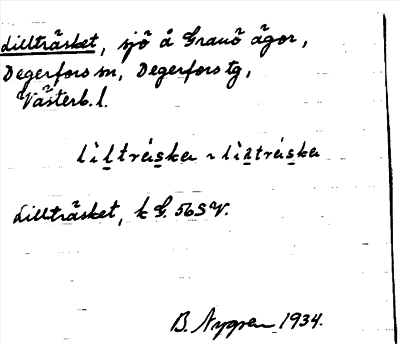 Lillträsket, sjö å Granö ägor,
Degerfors sn, Degerfors tg,
Västerb. l.
lìltrǽska ~ lìltrǽska
Lillträsket, k G. 56 S V.
B. Nygren 1934.